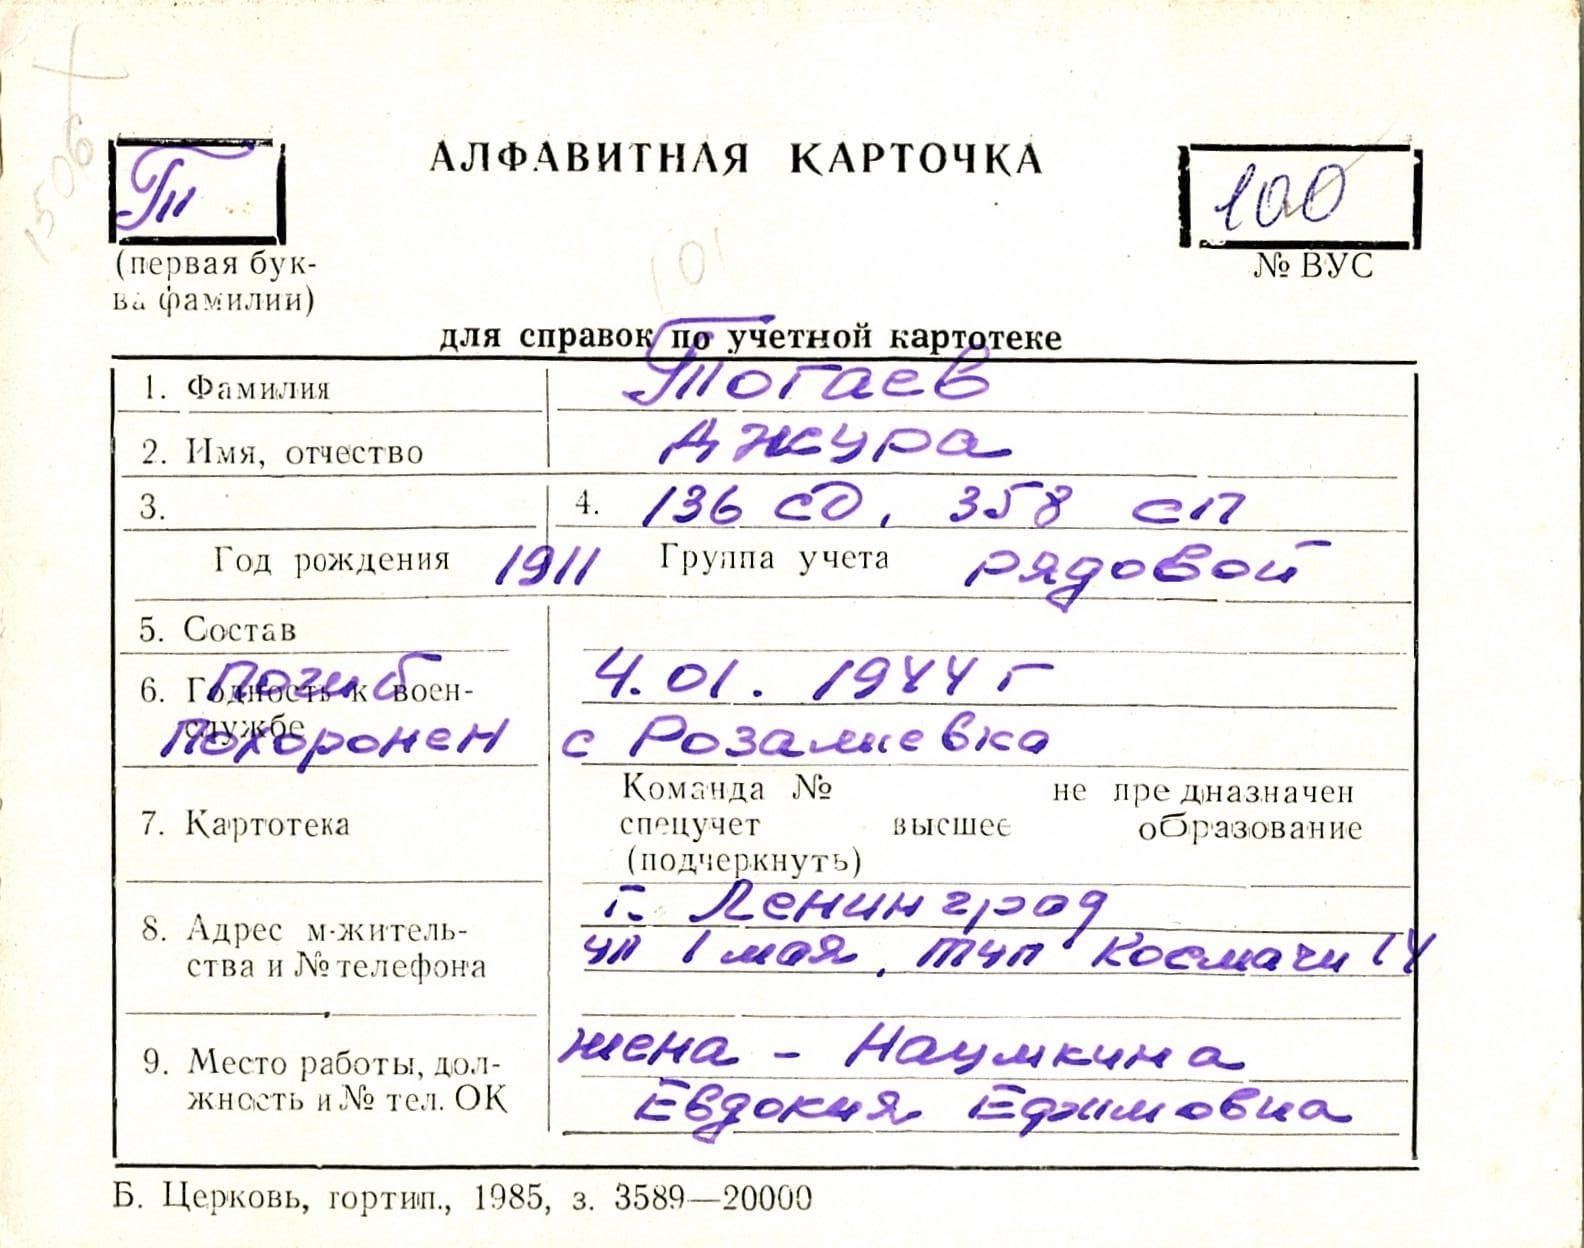 1506
Т
АЛФАВИТНАЯ КАРТОЧКА
100
(первая бук-
ва фамилии)
101
№ ВУС
для справок по учетной картотеке
1. Фамилия Тогаев
2. Имя, отчество Джура
3. 4. 136 сд, 358 сп
Год рождения 1911 Группа учета рядовой
5. Состав
6. Годность к воен- Погиб 4.01.1944 г
службе Похоронен с Розалиевка
Команда № не предназначен
7. Картотека спецучет высшее образование
(подчеркнуть)
г. Ленинград
8. Адрес м-житель- ул 1 мая, туп Космачи 14
ства и № телефона
жена - Наумкина
9. Место работы, дол-
жность и № тел. ОК Евдокия Ефимовна
Б. Церковь, гортип., 1985, з. 3589—20000